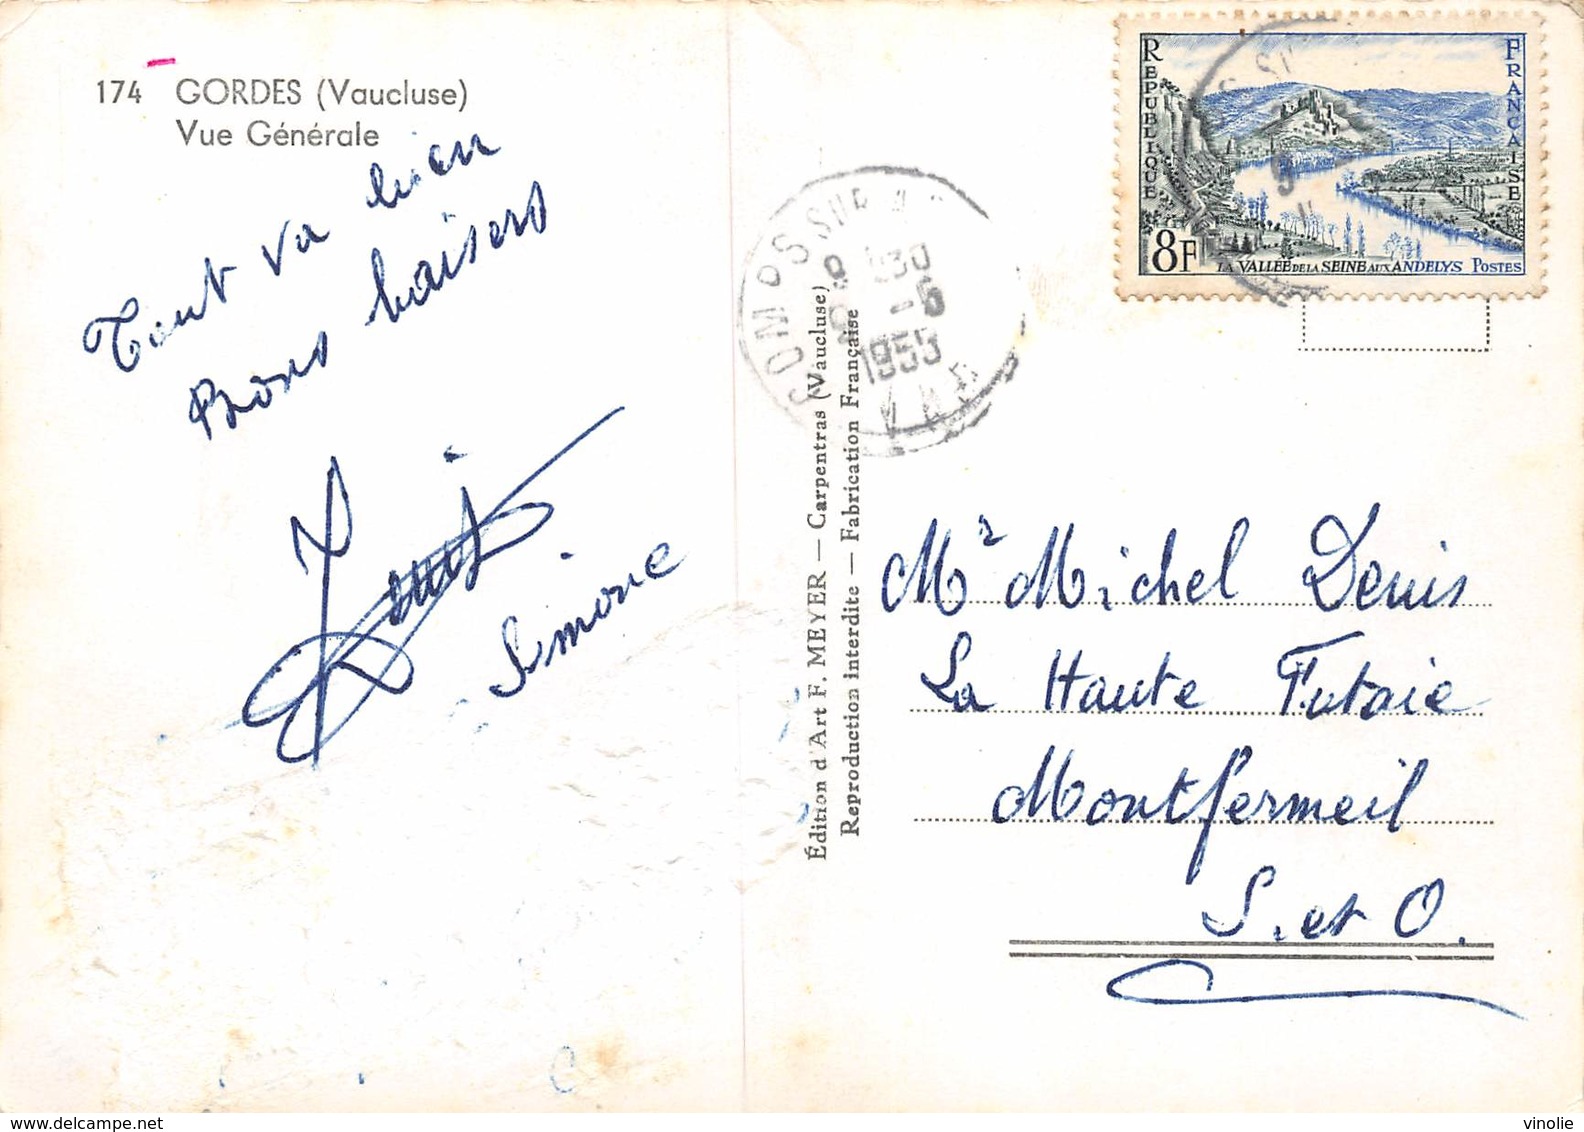 174 GORDES (Vaucluse)
Vue Générale
Tout va bien
Bons baisers
Simone
Édition d'Art F. MEYER — Carpentras (Vaucluse)
Reproduction interdite — Fabrication Française
COMPS SUR
-5
1955
VAR
REPUBLIQUE
FRANÇAISE
8F
LA VALLÉE DE LA SEINE AUX ANDELYS POSTES
Mr Michel Denis
La Haute Futaie
Montfermeil
S. et O.
www.delcampe.net
vinolie